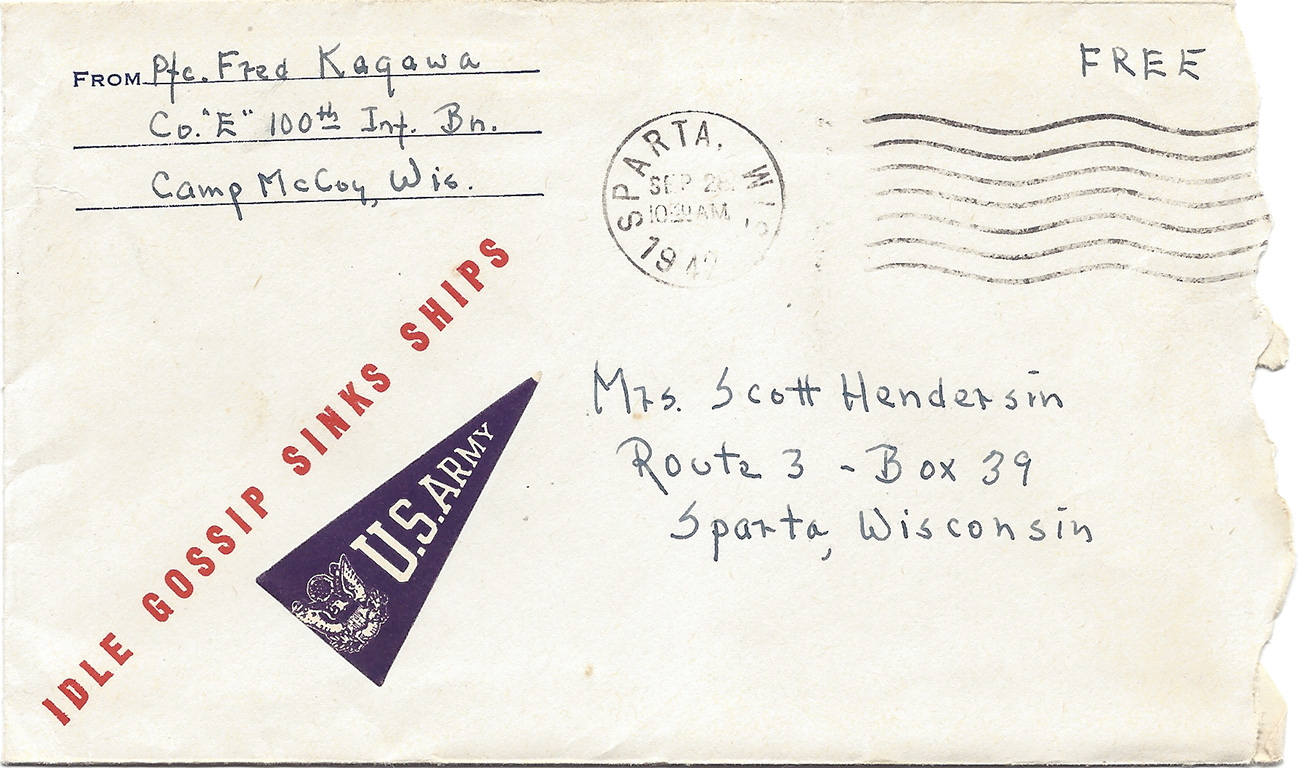 FROM Pfc. Fred Kagawa
Co. "E" 100th Inf. Bn.
Camp McCoy, Wis.
FREE
SPARTA, WIS.
SEP 28
10 30 AM
1942
IDLE GOSSIP SINKS SHIPS
U.S. ARMY
Mrs. Scott Hendersin
Route 3 - Box 39
Sparta, Wisconsin